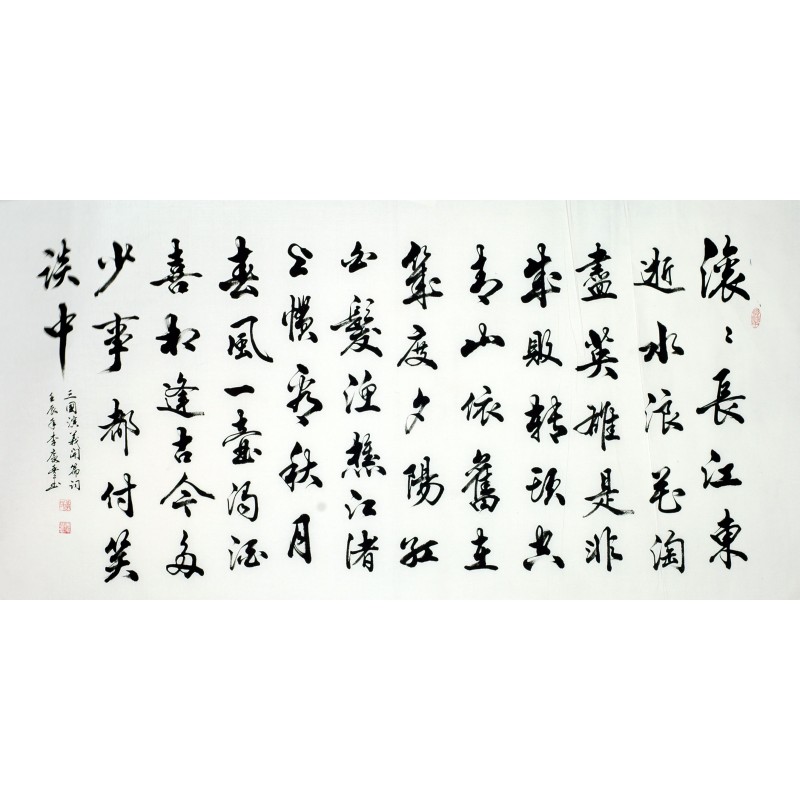 滚〻長江東
逝水浪花淘
盡英雄是非
成敗轉頭空
青山依舊在
幾度夕陽紅
白髮漁樵江渚
上慣看秋月
春風一壺濁酒
喜相逢古今多
少事都付笑
談中
三國演義開篇詞
壬辰年李書